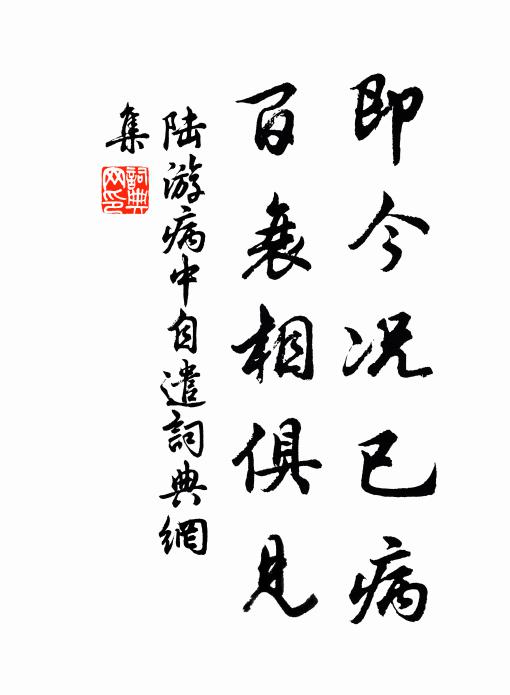 即今况已病
百衰相俱見
陸游病中自遣詞典網
集
詞典网印